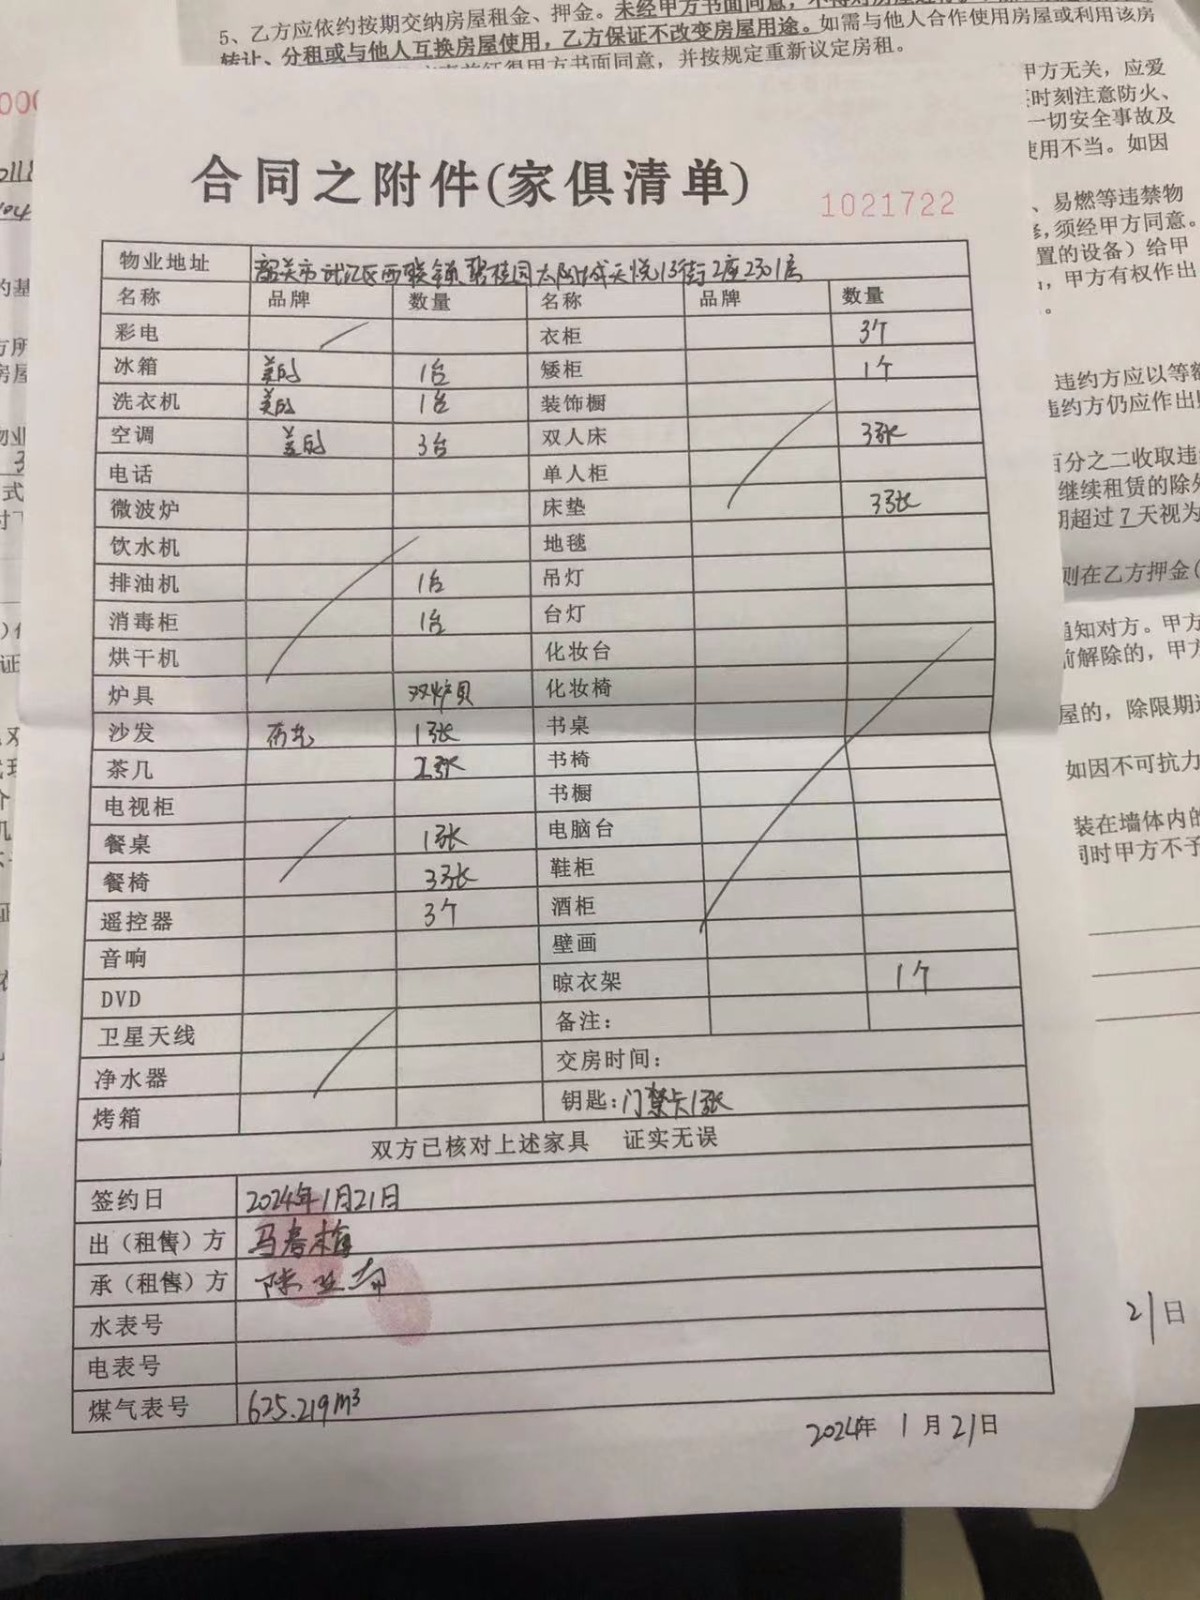 5、乙方应依约按期交纳房屋租金、押金。未经甲方书面同意，不得对房屋进行
转让、分租或与他人互换房屋使用，乙方保证不改变房屋用途。如需与他人合作使用房屋或利用该房
征得甲方书面同意，并按规定重新议定房租。
甲方无关，应爱
时刻注意防火、
一切安全事故及
使用不当。如因
、易燃等违禁物
，须经甲方同意。
置的设备）给甲
，甲方有权作出
。
违约方应以等额
违约方仍应作出
百分之二收取违
继续租赁的除外
期超过7天视为
则在乙方押金(
通知对方。甲方
前解除的，甲方
屋的，除限期
如因不可抗力
装在墙体内的
同时甲方不予
21日
合同之附件(家俱清单)
1021722
物业地址 韶关市武江区西联镇碧桂园太阳城天悦13街2座2301房
名称 品牌 数量 名称 品牌 数量
彩电 衣柜 3个
冰箱 美的 1台 矮柜 1个
洗衣机 美的 1台 装饰橱
空调 美的 3台 双人床 3张
电话 单人柜
微波炉 床垫 3张
饮水机 地毯
排油机 1台 吊灯
消毒柜 1台 台灯
烘干机 化妆台
炉具 双炉具 化妆椅
沙发 布艺 1张 书桌
茶几 张 书椅
电视柜 书橱
餐桌 1张 电脑台
餐椅 3张 鞋柜
遥控器 3个 酒柜
音响 壁画
DVD 晾衣架 1个
卫星天线 备注：
净水器 交房时间：
烤箱 钥匙：门禁卡1张
双方已核对上述家具 证实无误
签约日 2024年1月21日
出（租售）方 马春梅
承（租售）方 陈
水表号
电表号
煤气表号 625.219m³
2024年 1月21日